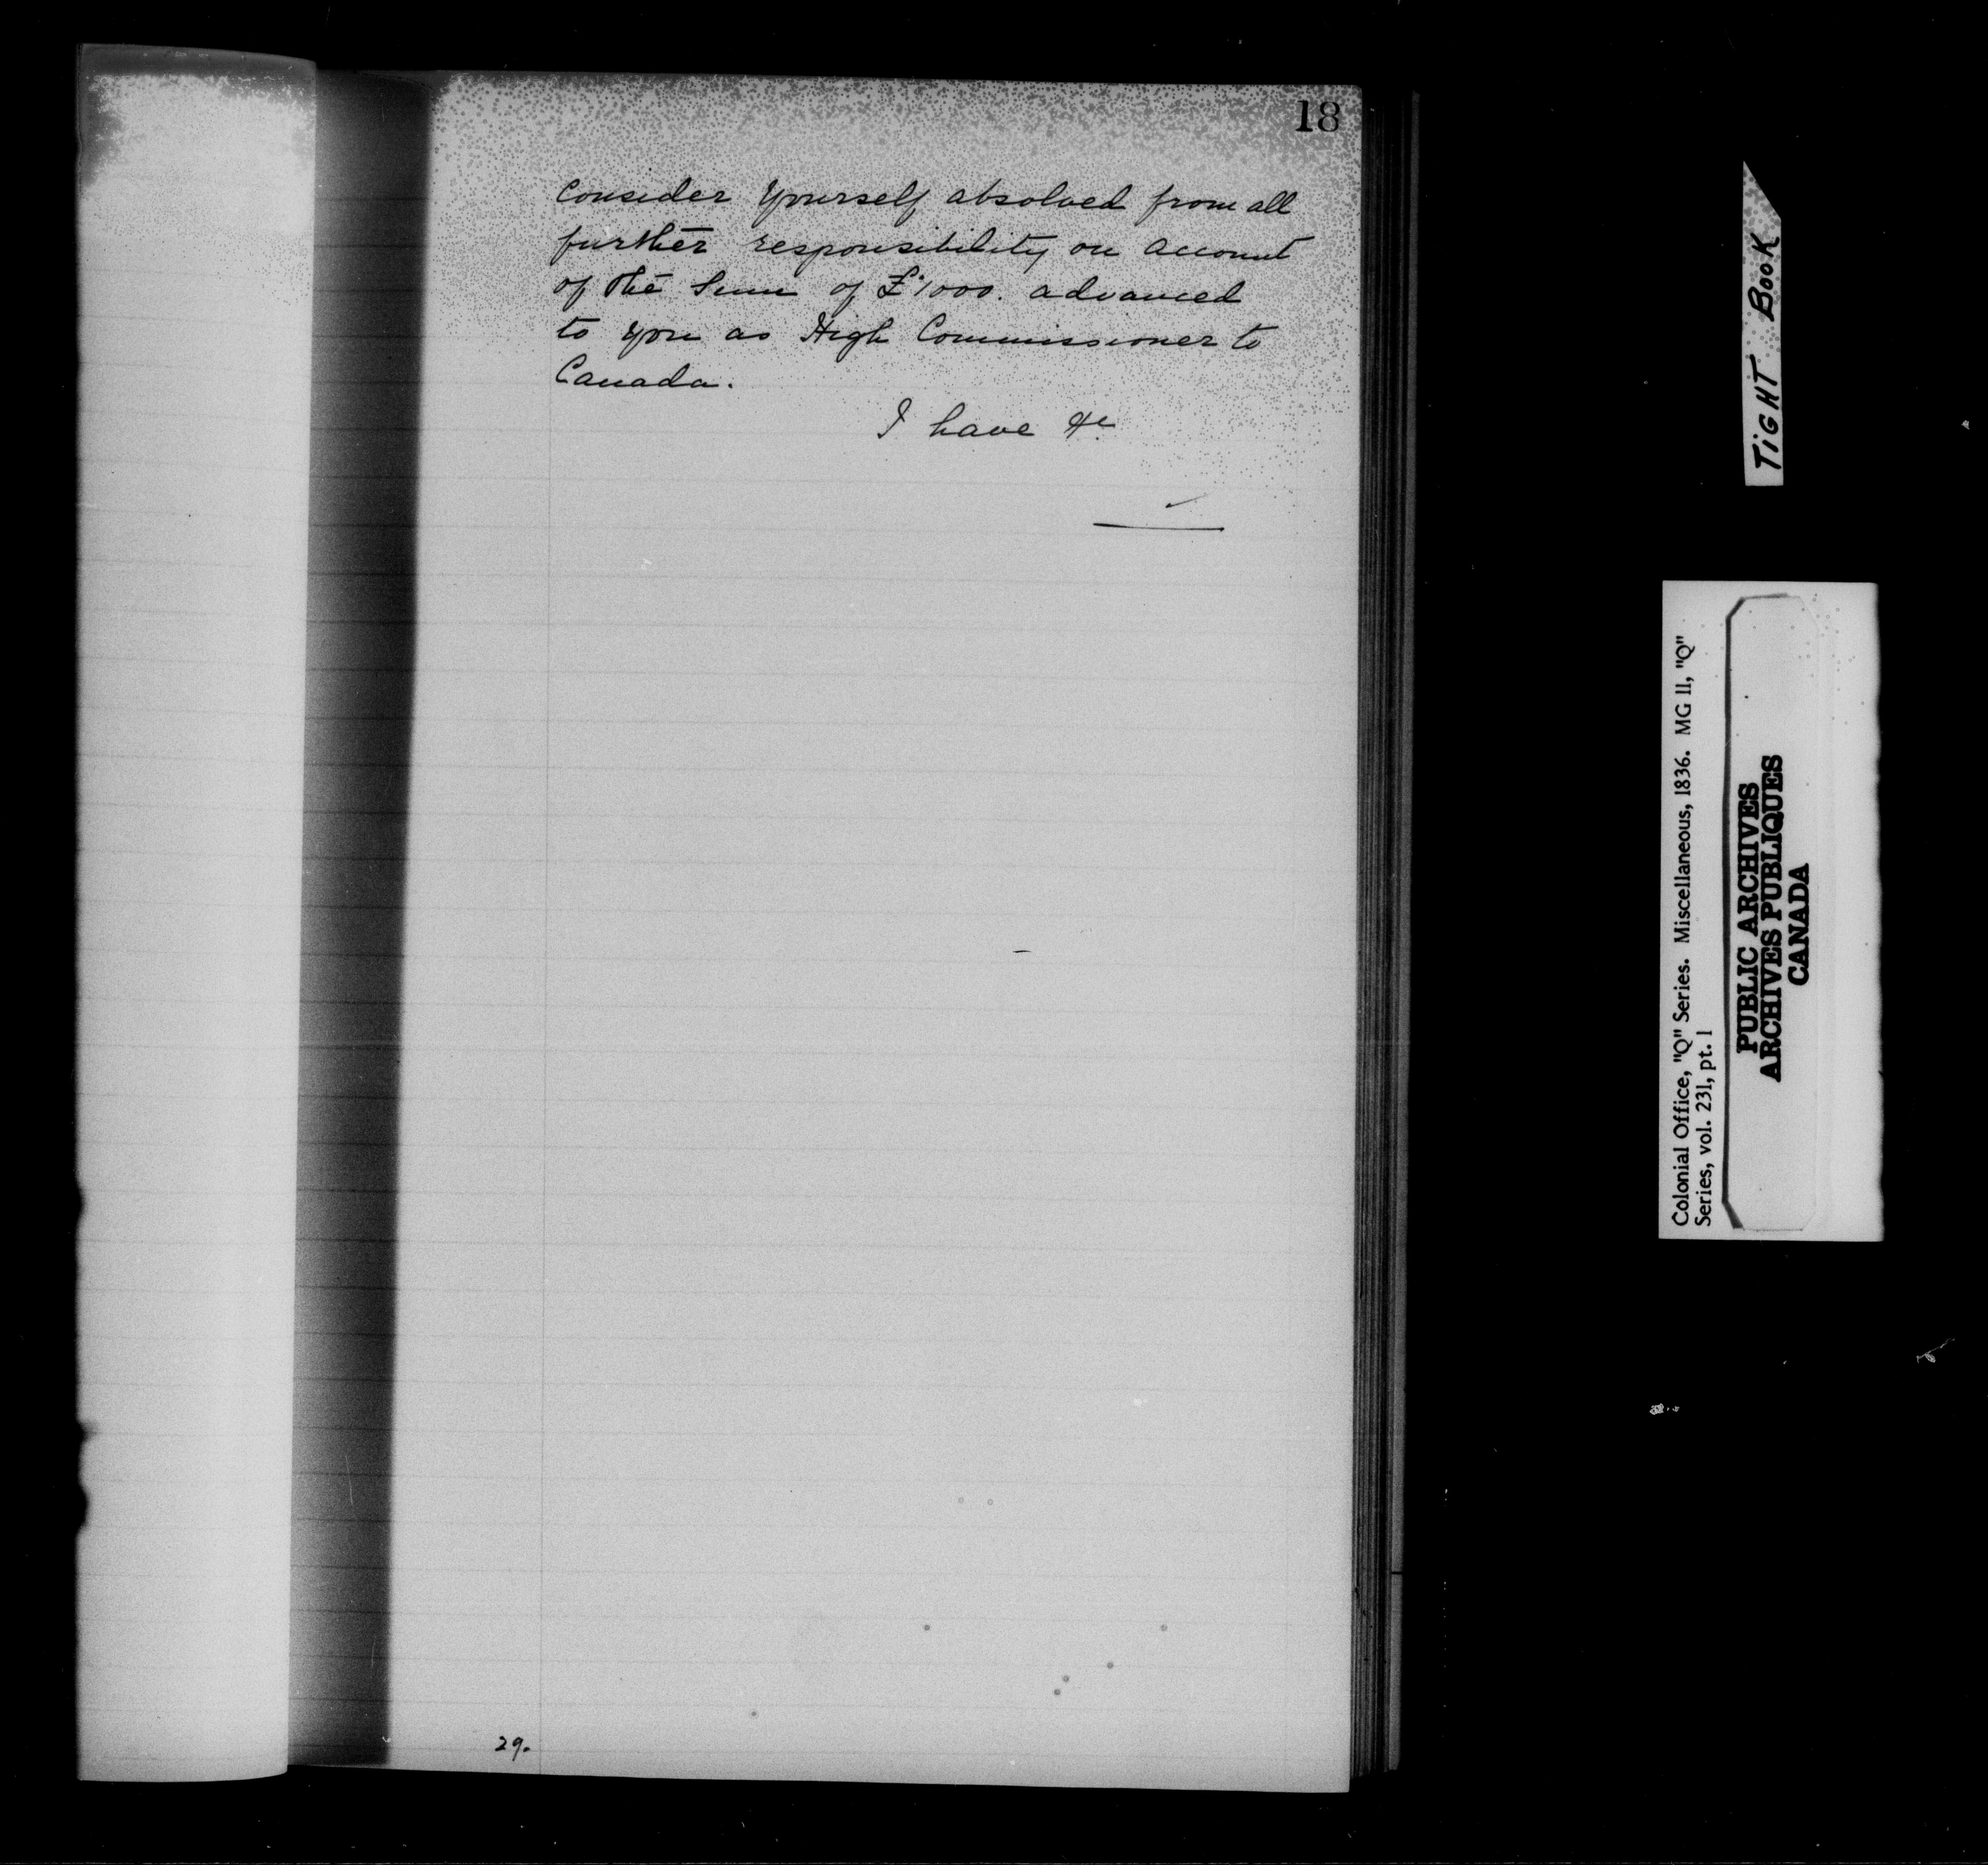 18
Consider yourself absolved from all
further responsibility on account
of the Sum of £1000. advanced
to you as High Commissioner to
Canada.
I have &c
29.
TIGHT BOOK
Colonial Office, "Q" Series. Miscellaneous, 1836. MG 11, "Q"
Series, vol. 231, pt. 1
PUBLIC ARCHIVES
ARCHIVES PUBLIQUES
CANADA